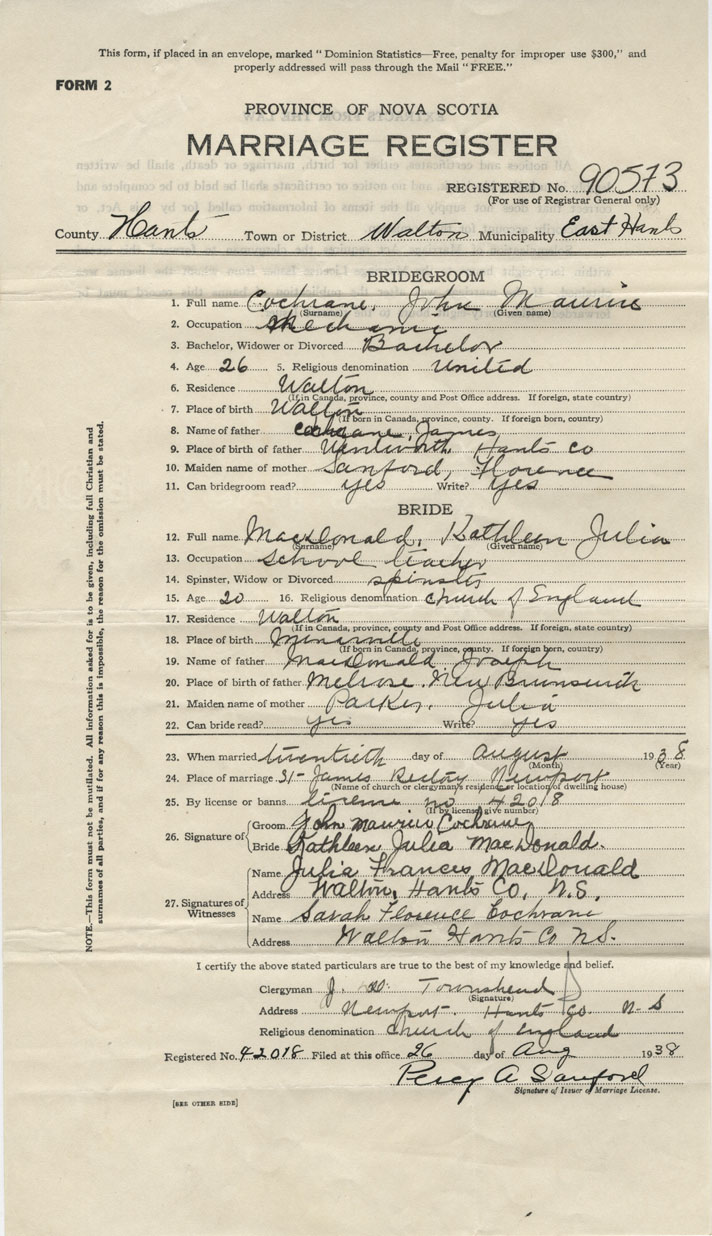 This form, if placed in an envelope, marked "Dominion Statistics—Free, penalty for improper use $300," and
properly addressed will pass through the Mail "FREE."
FORM 2
PROVINCE OF NOVA SCOTIA
MARRIAGE REGISTER
REGISTERED No. 90573
(For use of Registrar General only)
County Hants Town or District Walton Municipality East Hants
BRIDEGROOM
1. Full name Cochrane, John Maurice
(Surname) (Given name)
2. Occupation Mechanic
3. Bachelor, Widower or Divorced Bachelor
4. Age 26 5. Religious denomination United
6. Residence Walton
(If in Canada, province, county and Post Office address. If foreign, state country)
7. Place of birth Walton
(If born in Canada, province, county. If foreign born, country)
8. Name of father Cochrane, James
9. Place of birth of father Wentworth Hants Co
10. Maiden name of mother Sanford, Florence
11. Can bridegroom read? yes Write? yes
BRIDE
12. Full name MacDonald, Kathleen Julia
(Surname) (Given name)
13. Occupation School teacher
14. Spinster, Widow or Divorced spinster
15. Age 20 16. Religious denomination Church of England
17. Residence Walton
(If in Canada, province, county and Post Office address. If foreign, state country)
18. Place of birth
(If born in Canada, province, county. If foreign born, country)
19. Name of father MacDonald Joseph
20. Place of birth of father Melrose New Brunswick
21. Maiden name of mother Parker, Julia
22. Can bride read? yes Write? yes
23. When married twentieth day of august 1938
(Month) (Year)
24. Place of marriage St James Rectory Newport
(Name of church or clergyman's residence or location of dwelling house)
25. By license or banns license no 42018
(If by license, give number)
26. Signature of Groom John Maurice Cochrane
Bride Kathleen Julia MacDonald.
27. Signatures of Witnesses
Name Julia Frances MacDonald
Address Walton, Hants Co, N.S.
Name Sarah Florence Cochrane
Address Walton Hants Co N.S.
I certify the above stated particulars are true to the best of my knowledge and belief.
Clergyman J. W. Townshend
(Signature)
Address Newport. Hants Co. N-S
Religious denomination Church of England
Registered No. 42018 Filed at this office 26 day of Aug 1938
Percy A Sanford
Signature of Issuer of Marriage License.
[SEE OTHER SIDE]
NOTE.—This form must not be mutilated. All information asked for is to be given, including full Christian and
surnames of all parties, and if for any reason this is impossible, the reason for the omission must be stated.